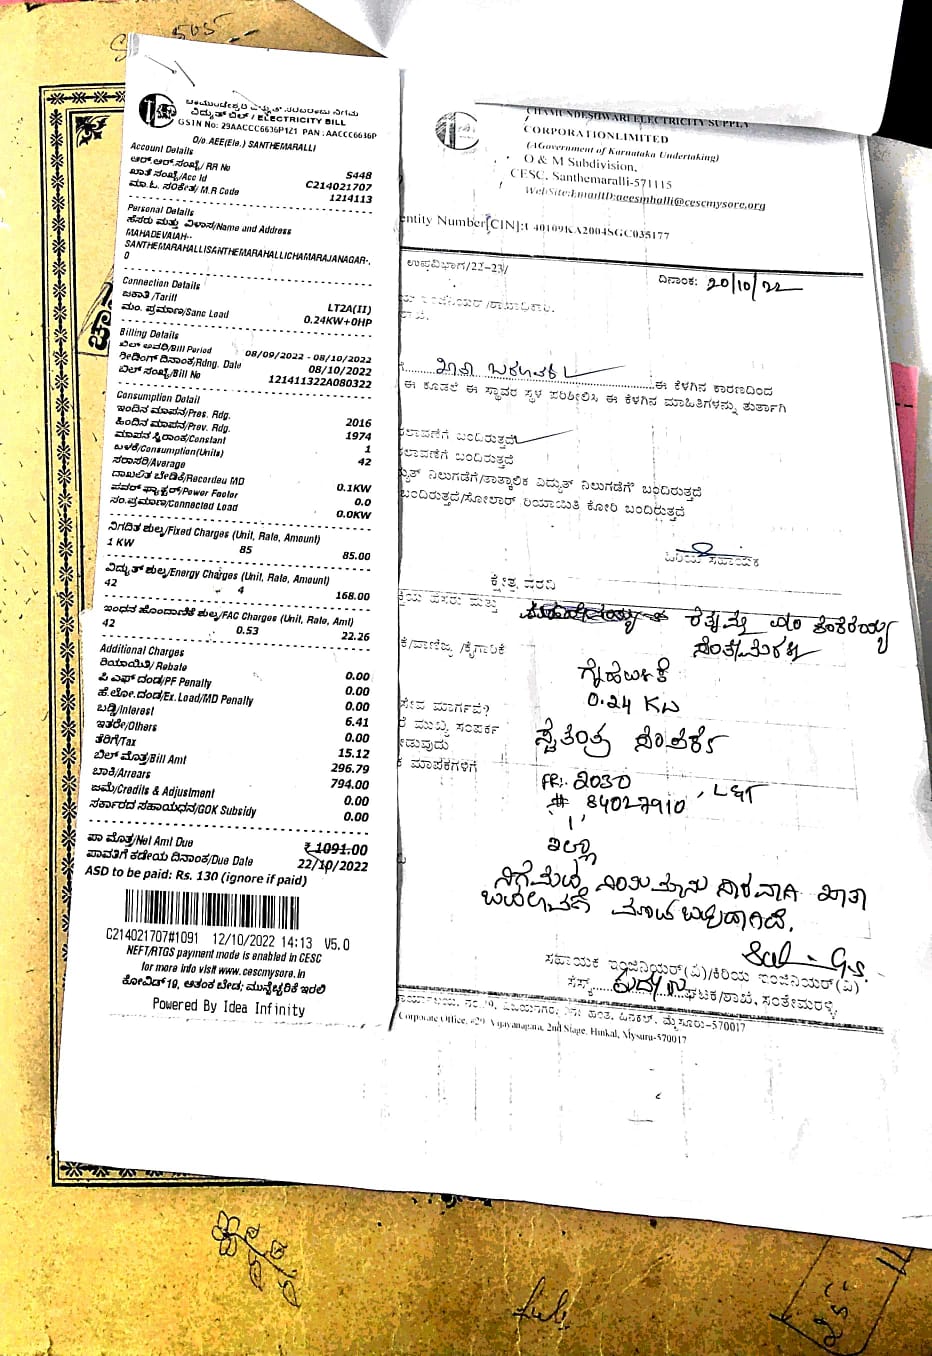 ಚಾಮುಂಡೇಶ್ವರಿ ವಿದ್ಯುತ್ ಸರಬರಾಜು ನಿಗಮ
ವಿದ್ಯುತ್ ಬಿಲ್ / ELECTRICITY BILL
GSIN No: 29AACCC6636P1Z1 PAN : AACCC6636P
O/o. AEE(Ele.) SANTHEMARALLI
Account Details
ಆರ್.ಆರ್.ಸಂಖ್ಯೆ/ RR No S448
ಖಾತೆ ಸಂಖ್ಯೆ/Acc Id C214021707
ಮಾ.ಓ. ಸಂಕೇತ/ M.R Code 1214113
Personal Details
ಹೆಸರು ಮತ್ತು ವಿಳಾಸ/Name and Address
MAHADEVAIAH--
SANTHEMARAHALLISANTHEMARAHALLICHAMARAJANAGAR-,
0
Connection Details
ಜಕಾತಿ /Tariff LT2A(II)
ಮಂ. ಪ್ರಮಾಣ/Sanc Load 0.24KW+0HP
Billing Details
ಬಿಲ್ ಅವಧಿ/Bill Period 08/09/2022 - 08/10/2022
ರೀಡಿಂಗ್ ದಿನಾಂಕ/Rdng. Date 08/10/2022
ಬಿಲ್ ಸಂಖ್ಯೆ/Bill No 121411322A080322
Consumption Detail
ಇಂದಿನ ಮಾಪನ/Pres. Rdg. 2016
ಹಿಂದಿನ ಮಾಪನ/Prev. Rdg. 1974
ಮಾಪನ ಸ್ಥಿರಾಂಕ/Constant 1
ಬಳಕೆ/Consumption(Units) 42
ಸರಾಸರಿ/Average
ದಾಖಲಿತ ಬೇಡಿಕೆ/Recorded MD 0.1KW
ಪವರ್ ಫ್ಯಾಕ್ಟರ್/Power Factor 0.0
ಸಂ.ಪ್ರಮಾಣ/Connected Load 0.0KW
ನಿಗದಿತ ಶುಲ್ಕ/Fixed Charges (Unit, Rate, Amount)
1 KW 85 85.00
ವಿದ್ಯುತ್ ಶುಲ್ಕ/Energy Charges (Unit, Rate, Amount)
42 4 168.00
ಇಂಧನ ಹೊಂದಾಣಿಕೆ ಶುಲ್ಕ/FAC Charges (Unit, Rate, Amt)
42 0.53 22.26
Additional Charges
ರಿಯಾಯಿತಿ/ Rebate 0.00
ಪಿ ಎಫ್ ದಂಡ/PF Penalty 0.00
ಹೆ.ಲೋ.ದಂಡ/Ex.Load/MD Penalty 0.00
ಬಡ್ಡಿ/Interest 6.41
ಇತರೇ/Others 0.00
ತೆರಿಗೆ/Tax 15.12
ಬಿಲ್ ಮೊತ್ತ/Bill Amt 296.79
ಬಾಕಿ/Arrears 794.00
ಜಮೆ/Credits & Adjustment 0.00
ಸರ್ಕಾರದ ಸಹಾಯಧನ/GOK Subsidy 0.00
ಪಾ ಮೊತ್ತ/Net Amt Due ₹ 1091.00
ಪಾವತಿಗೆ ಕಡೆಯ ದಿನಾಂಕ/Due Date 22/10/2022
ASD to be paid: Rs. 130 (ignore if paid)
C214021707#1091 12/10/2022 14:13 V5.0
NEFT/RTGS payment mode is enabled in CESC
for more info visit www.cescmysore.in
ಕೋವಿಡ್ 19, ಆತಂಕ ಬೇಡ; ಮುನ್ನೆಚ್ಚರಿಕೆ ಇರಲಿ
Powered By Idea Infinity
CHAMUNDESHWARI ELECTRICITY SUPPLY
CORPORATIONLIMITED
(AGovernment of Karnataka Undertaking)
O & M Subdivision,
CESC, Santhemaralli-571115
WebSite:EmailID:aeesmhalli@cescmysore.org
entity Number[CIN]:U40109KA2004SGC035177
ಉಪವಿಭಾಗ/22-23/ ದಿನಾಂಕ: 20/10/22
ಖಾತಾ ಬದಲಾವಣೆ ಈ ಕೆಳಗಿನ ಕಾರಣದಿಂದ
ಈ ಕೂಡಲೆ ಈ ಸ್ಥಾವರ ಸ್ಥಳ ಪರಿಶೀಲಿಸಿ ಈ ಕೆಳಗಿನ ಮಾಹಿತಿಗಳನ್ನು ತುರ್ತಾಗಿ
ಲಾವಣೆಗೆ ಬಂದಿರುತ್ತದೆ
ಲಾವಣೆಗೆ ಬಂದಿರುತ್ತದೆ
ಯುತ್ ನಿಲುಗಡೆಗೆ/ತಾತ್ಕಾಲಿಕ ವಿದ್ಯುತ್ ನಿಲುಗಡೆಗೆ ಬಂದಿರುತ್ತದೆ
ಬಂದಿರುತ್ತದೆ/ಸೋಲಾರ್ ರಿಯಾಯಿತಿ ಕೋರಿ ಬಂದಿರುತ್ತದೆ
ಹಿರಿಯ ಸಹಾಯಕ
ಕ್ಷೇತ್ರ ವರದಿ
ಯ ಹೆಸರು ಮತ್ತು
ಕೆ/ವಾಣಿಜ್ಯ /ಕೈಗಾರಿಕೆ ಗೃಹಬಳಕೆ
0.24 KW
ಮಾರ್ಗವೆ?
ಮುಖ್ಯ ಸಂಪರ್ಕ ಸ್ವತಂತ್ರ ಸಂಪರ್ಕ
ಡುವುದು
ಮಾಪಕಗಳಿಗೆ FR: 2030, L&T
# 84027910
ಇಲ್ಲಾ
ನಿಗಮದ ನಿಯಮಾನುಸಾರವಾಗಿ ಖಾತಾ
ಬದಲಾವಣೆ ಮಾಡಬಹುದಾಗಿದೆ.
ಸಹಾಯಕ ಇಂಜಿನಿಯರ್(ವಿ)/ಕಿರಿಯ ಇಂಜಿನಿಯರ್(ವಿ)
ಘಟಕ/ಶಾಖೆ, ಸಂತೇಮರಳ್ಳಿ,
Corporate Office, #29, Vijayanagara, 2nd Stage, Hinkal, Mysuru-570017